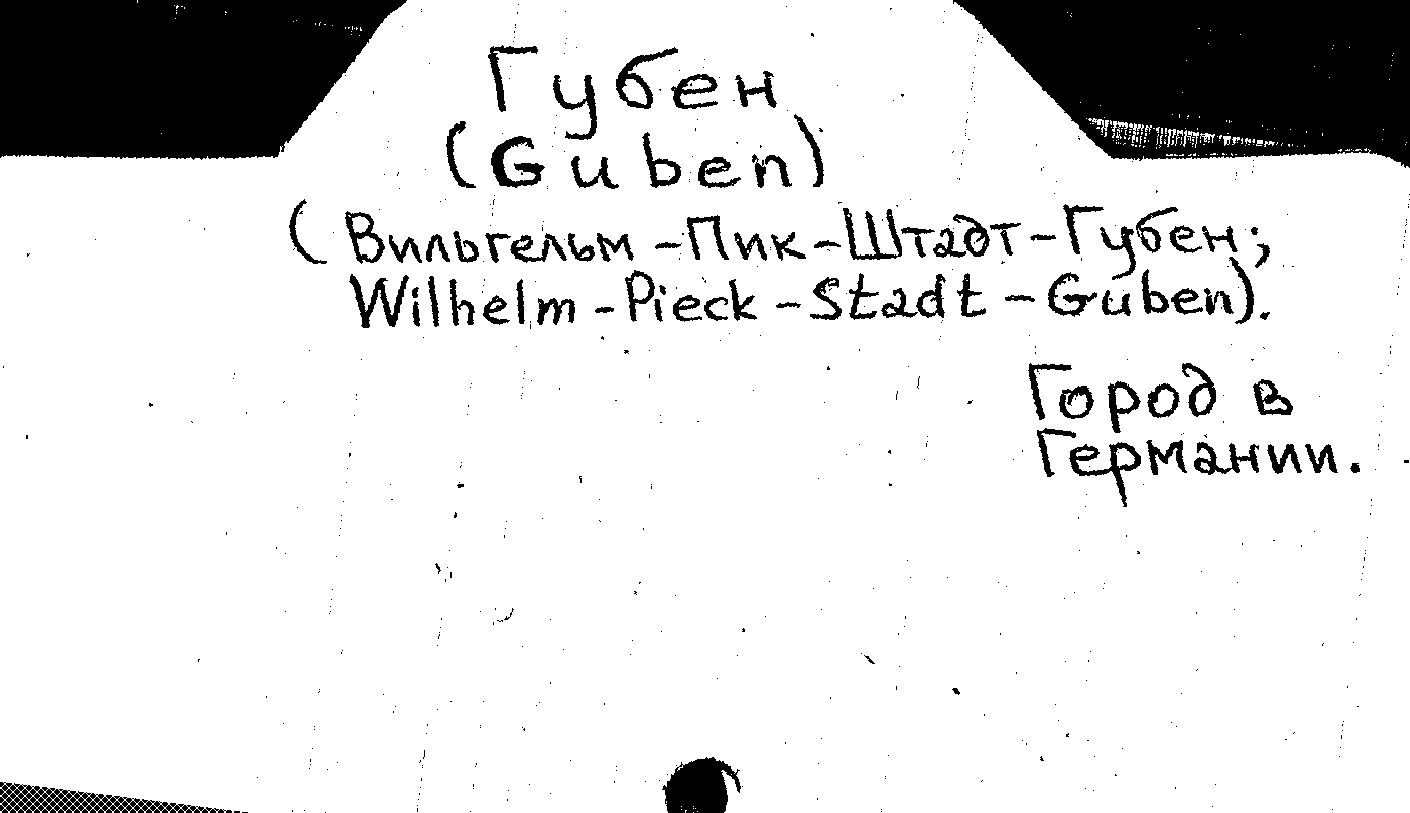 Губен
(Guben)
(Вильгельм-Пик-Штадт-Губен;
Wilhelm-Pieck-Stadt-Guben).
Город в
Германии.